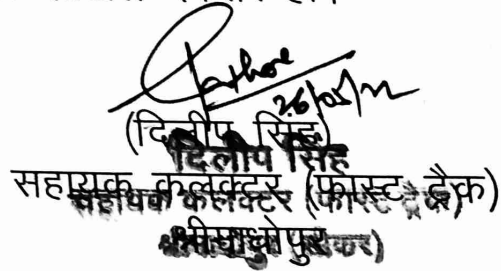 Rathore
26/05/22
(दिलीप सिंह)
दिलीप सिंह
सहायक कलक्टर (फास्ट ट्रैक)
सहायक कलक्टर (फास्ट ट्रैक)
श्रीमाधोपुर